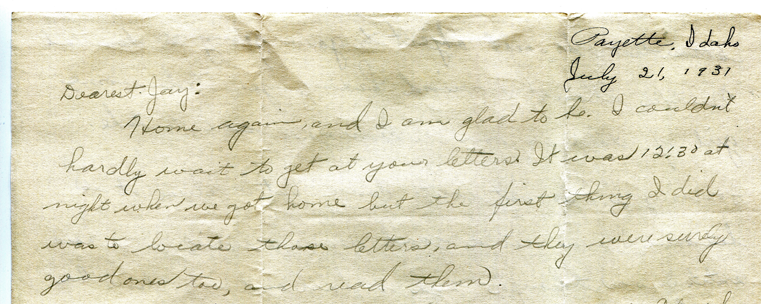 Payette, Idaho
July 21, 1931
Dearest Jay:
Home again, and I am glad to be. I couldn't
hardly wait to get at your letters. It was 12:30 at
night when we got home but the first thing I did
was to locate those letters, and they were surely
good ones too, and read them.